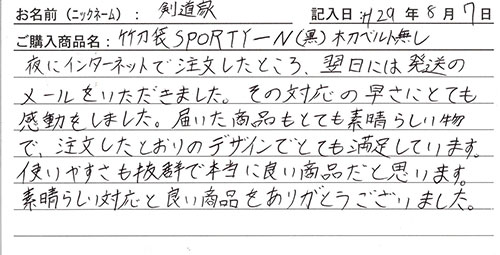 お名前（ニックネーム）： 剣道敬 記入日：H29年8月7日
ご購入商品名：竹刀袋SPORTY-N(黒)木刀ベルト無し
夜にインターネットで注文したところ、翌日には発送の
メールをいただきました。その対応の早さにとても
感動をしました。届いた商品もとても素晴らしい物
で、注文したとおりのデザインでとても満足しています。
使いやすさも抜群で本当に良い商品だと思います。
素晴らしい対応と良い商品をありがとうございました。